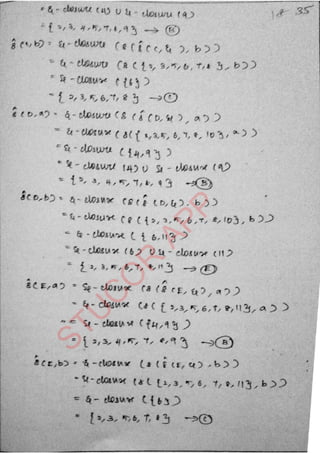 = ε-closure (4) ∪ ε-closure (9)
= {2, 3, 4, 5, 7, 8, 9} → (B)
18 35
δ̂(C, b) = ε-closure (δ(δ̂(C, ε), b))
= ε-closure (δ({2, 3, 5, 6, 7, 8}, b))
= ε-closure ({6})
= {2, 3, 5, 6, 7, 8} → (C)
δ̂(D, a) = ε-closure (δ(δ̂(D, ε), a))
= ε-closure (δ({2, 3, 5, 6, 7, 8, 10}, a))
= ε-closure ({4, 9})
= ε-closure (4) ∪ ε-closure (9)
= {2, 3, 4, 5, 7, 8, 9} → (B)
δ̂(D, b) = ε-closure (δ(δ̂(D, ε), b))
= ε-closure (δ({2, 3, 5, 6, 7, 8, 10}, b))
= ε-closure ({6, 11})
= ε-closure (6) ∪ ε-closure (11)
= {2, 3, 5, 6, 7, 8, 11} → (E)
δ̂(E, a) = ε-closure (δ(δ̂(E, ε), a))
= ε-closure (δ({2, 3, 5, 6, 7, 8, 11}, a))
= ε-closure ({4, 9})
= {2, 3, 4, 5, 7, 8, 9} → (B)
δ̂(E, b) = ε-closure (δ(δ̂(E, ε), b))
= ε-closure (δ({2, 3, 5, 6, 7, 8, 11}, b))
= ε-closure ({6})
= {2, 3, 5, 6, 7, 8} → (C)
STUCOR APP